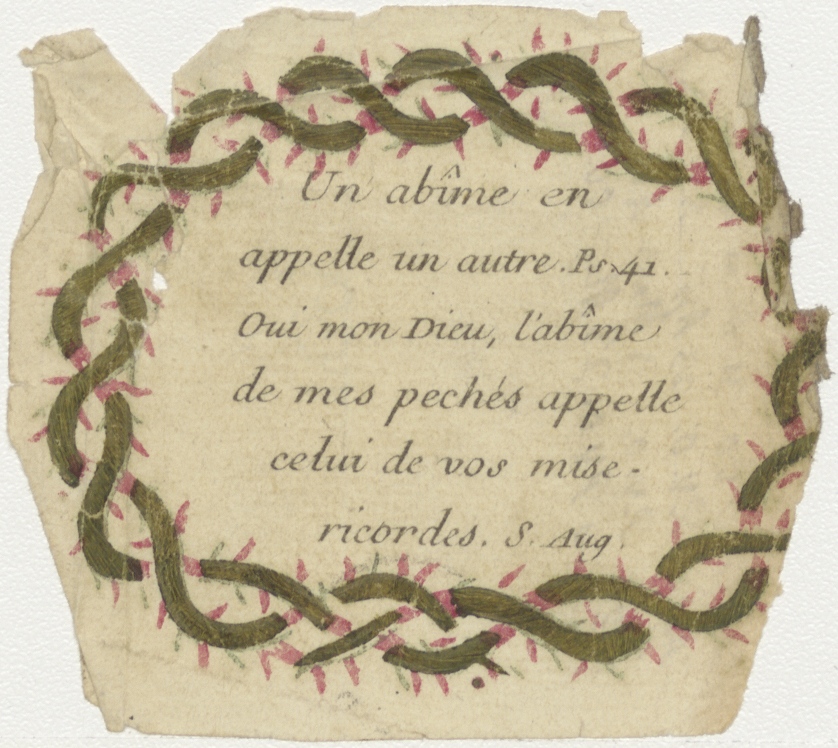 Un abîme en
appelle un autre. Ps. 41.
Oui mon Dieu, l'abîme
de mes pechés appelle
celui de vos mise-
ricordes. S. Aug.